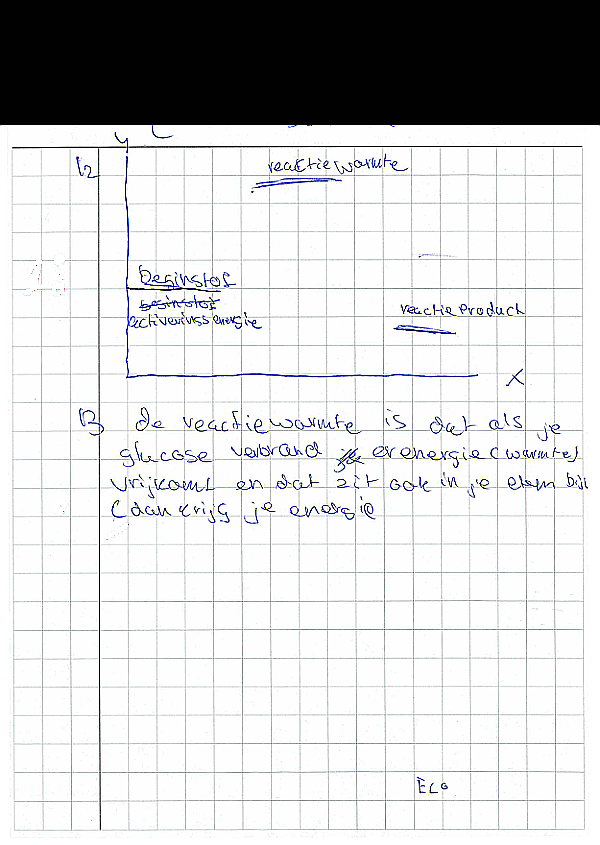 y
12
reactiewarmte
Beginstof
beginstof
activeringsenergie
reactie Product
X
13 de reactiewarmte is dat als je
glucose verbrand er energie (warmte)
vrijkomt en dat zit ook in je eten bij
(dan krijg je energie